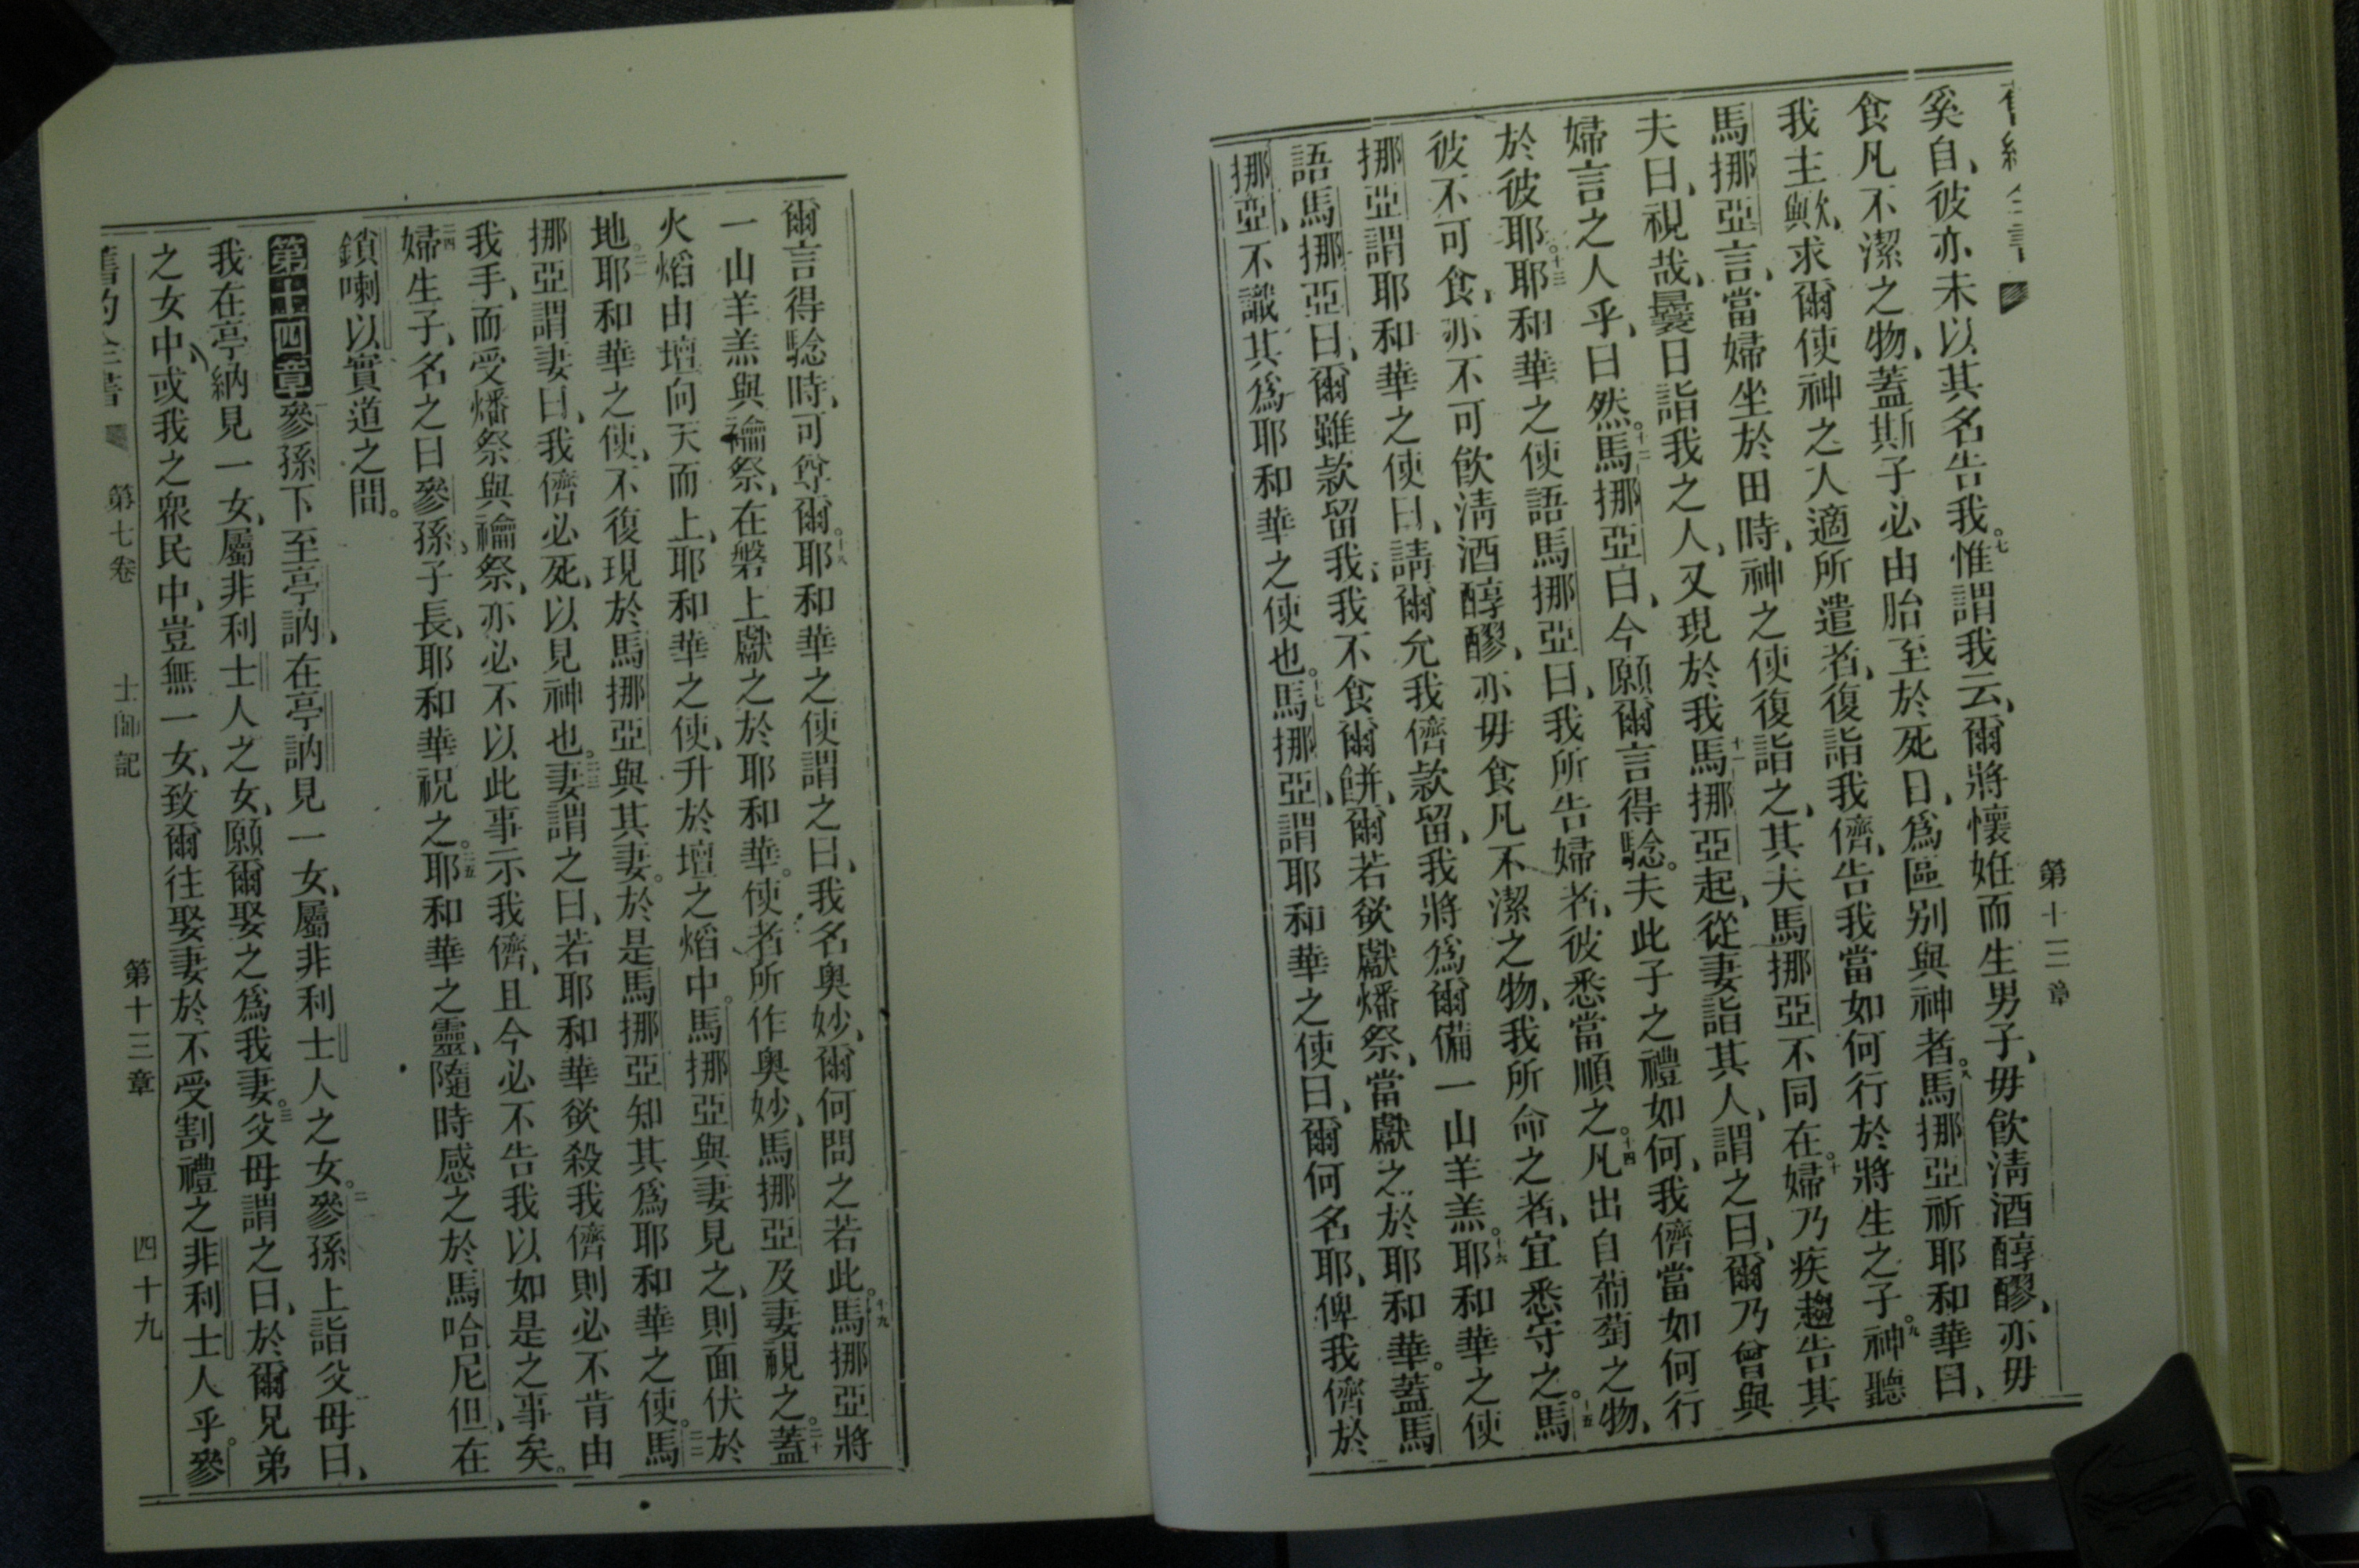 第十三章
奚自、彼亦未以其名告我。七惟謂我云、爾將懷姙而生男子、毋飲淸酒醇醪、亦毋
食凡不潔之物、蓋斯子必由胎至於死日、爲區别與神者。八馬挪亞祈耶和華曰、
我主歟、求爾使神之人適所遣者、復詣我儕、告我當如何行於將生之子。九神聽
馬挪亞言、當婦坐於田時、神之使復詣之、其夫馬挪亞不同在。十婦乃疾趨告其
夫曰、視哉、曩日詣我之人、又現於我。十一馬挪亞起、從妻詣其人、謂之曰、爾乃曾與
婦言之人乎、曰然。十二馬挪亞曰、今願爾言得騐。夫此子之禮如何、我儕當如何行
於彼耶。十三耶和華之使語馬挪亞曰、我所告婦者、彼悉當順之。十四凡出自葡萄之物、
彼不可食、亦不可飲淸酒醇醪、亦毋食凡不潔之物、我所命之者、宜悉守之。十五馬
挪亞謂耶和華之使曰、請爾允我儕款留、我將爲爾備一山羊羔。十六耶和華之使
語馬挪亞曰、爾雖款留我、我不食爾餅、爾若欲獻燔祭、當獻之於耶和華。蓋馬
挪亞、不識其爲耶和華之使也。十七馬挪亞、謂耶和華之使曰、爾何名耶、俾我儕於
爾言得騐時、可尊爾。十八耶和華之使謂之曰、我名奧妙、爾何問之若此。十九馬挪亞將
一山羊羔與禴祭、在磐上獻之於耶和華。使者所作奧妙、馬挪亞及妻視之。二十蓋
火熖由壇向天而上、耶和華之使、升於壇之熖中。馬挪亞與妻見之、則面伏於
地。二一耶和華之使、不復現於馬挪亞與其妻。於是馬挪亞知其爲耶和華之使。二二馬
挪亞謂妻曰、我儕必死、以見神也。二三妻謂之曰、若耶和華欲殺我儕、則必不肯由
我手、而受燔祭與禴祭、亦必不以此事示我儕、且今必不告我以如是之事矣。
二四婦生子、名之曰參孫、子長、耶和華祝之。二五耶和華之靈、隨時感之於馬哈尼但、在
鎖喇以實道之間。
第十四章參孫下至亭訥、在亭訥見一女、屬非利士人之女。二參孫上詣父母曰、
我在亭納見一女、屬非利士人之女、願爾娶之爲我妻。三父母謂之曰、於爾兄弟
之女中、或我之衆民中、豈無一女、致爾往娶妻於不受割禮之非利士人乎。參
舊約全書 第七卷 士師記 第十三章 四十九